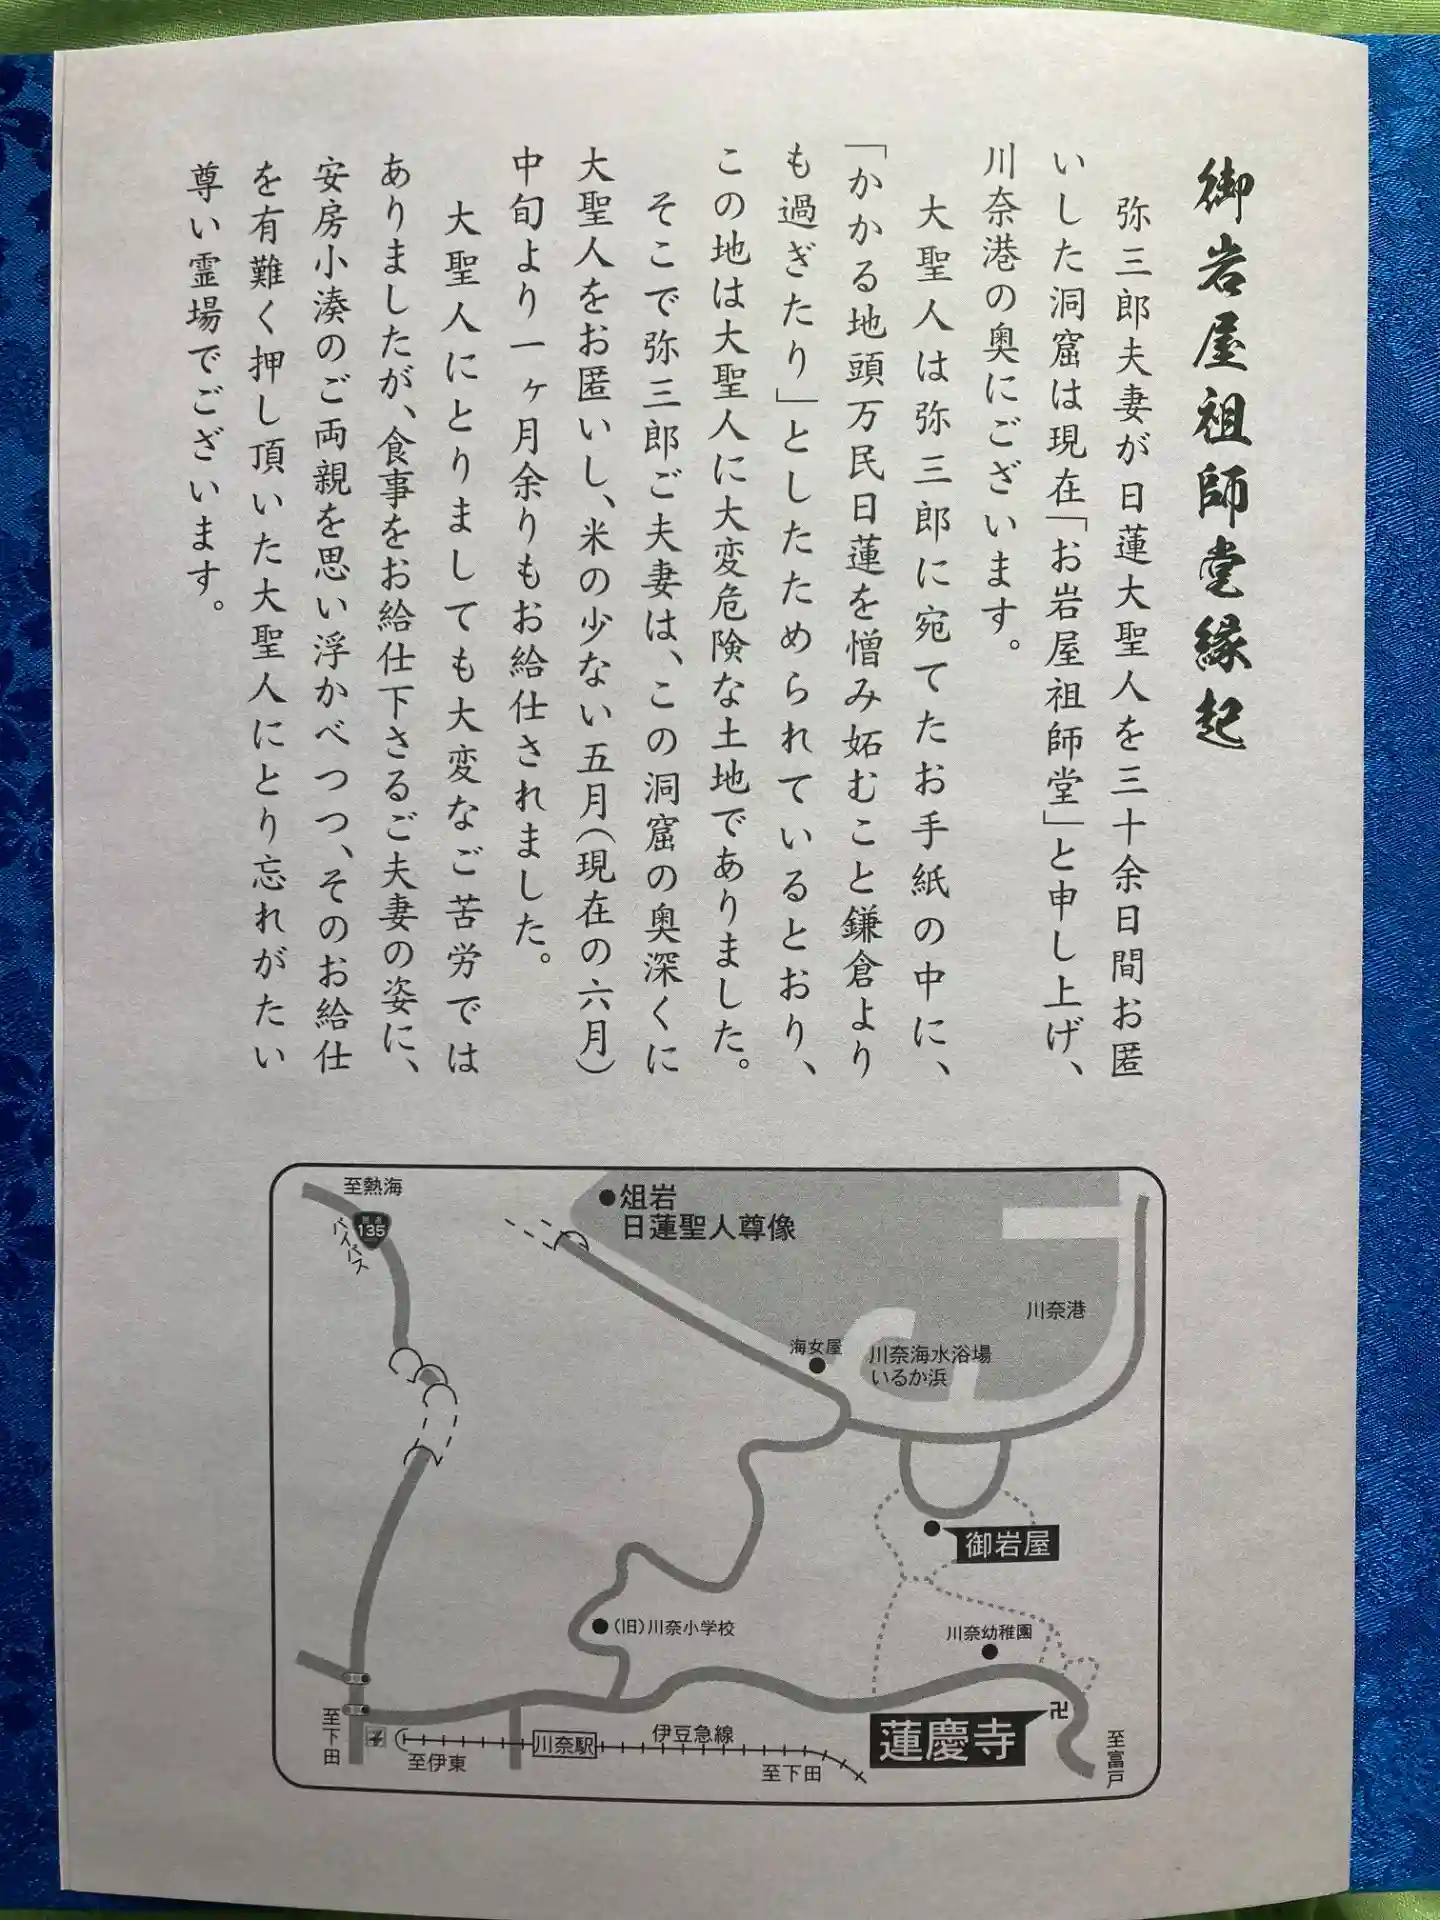 御岩屋祖師堂縁起
弥三郎夫妻が日蓮大聖人を三十余日間お匿
いした洞窟は現在「お岩屋祖師堂」と申し上げ、
川奈港の奥にございます。
大聖人は弥三郎に宛てたお手紙の中に、
「かかる地頭万民日蓮を憎み妬むこと鎌倉より
も過ぎたり」としたためられているとおり、
この地は大聖人に大変危険な土地でありました。
そこで弥三郎ご夫妻は、この洞窟の奥深くに
大聖人をお匿いし、米の少ない五月(現在の六月)
中旬より一ヶ月余りもお給仕されました。
大聖人にとりましても大変なご苦労では
ありましたが、食事をお給仕下さるご夫妻の姿に、
安房小湊のご両親を思い浮かべつつ、そのお給仕
を有難く押し頂いた大聖人にとり忘れがたい
尊い霊場でございます。
至熱海
135
バイパス
俎岩
日蓮聖人尊像
川奈港
海女屋
川奈海水浴場
いるか浜
御岩屋
(旧)川奈小学校
川奈幼稚園
卍
蓮慶寺
至富戸
至下田
至伊東
川奈駅
伊豆急線
至下田